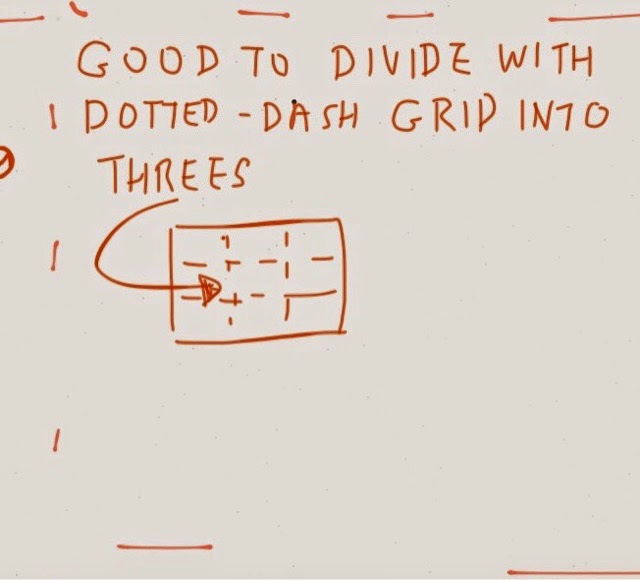 GOOD TO DIVIDE WITH
DOTTED-DASH GRID INTO
THREES